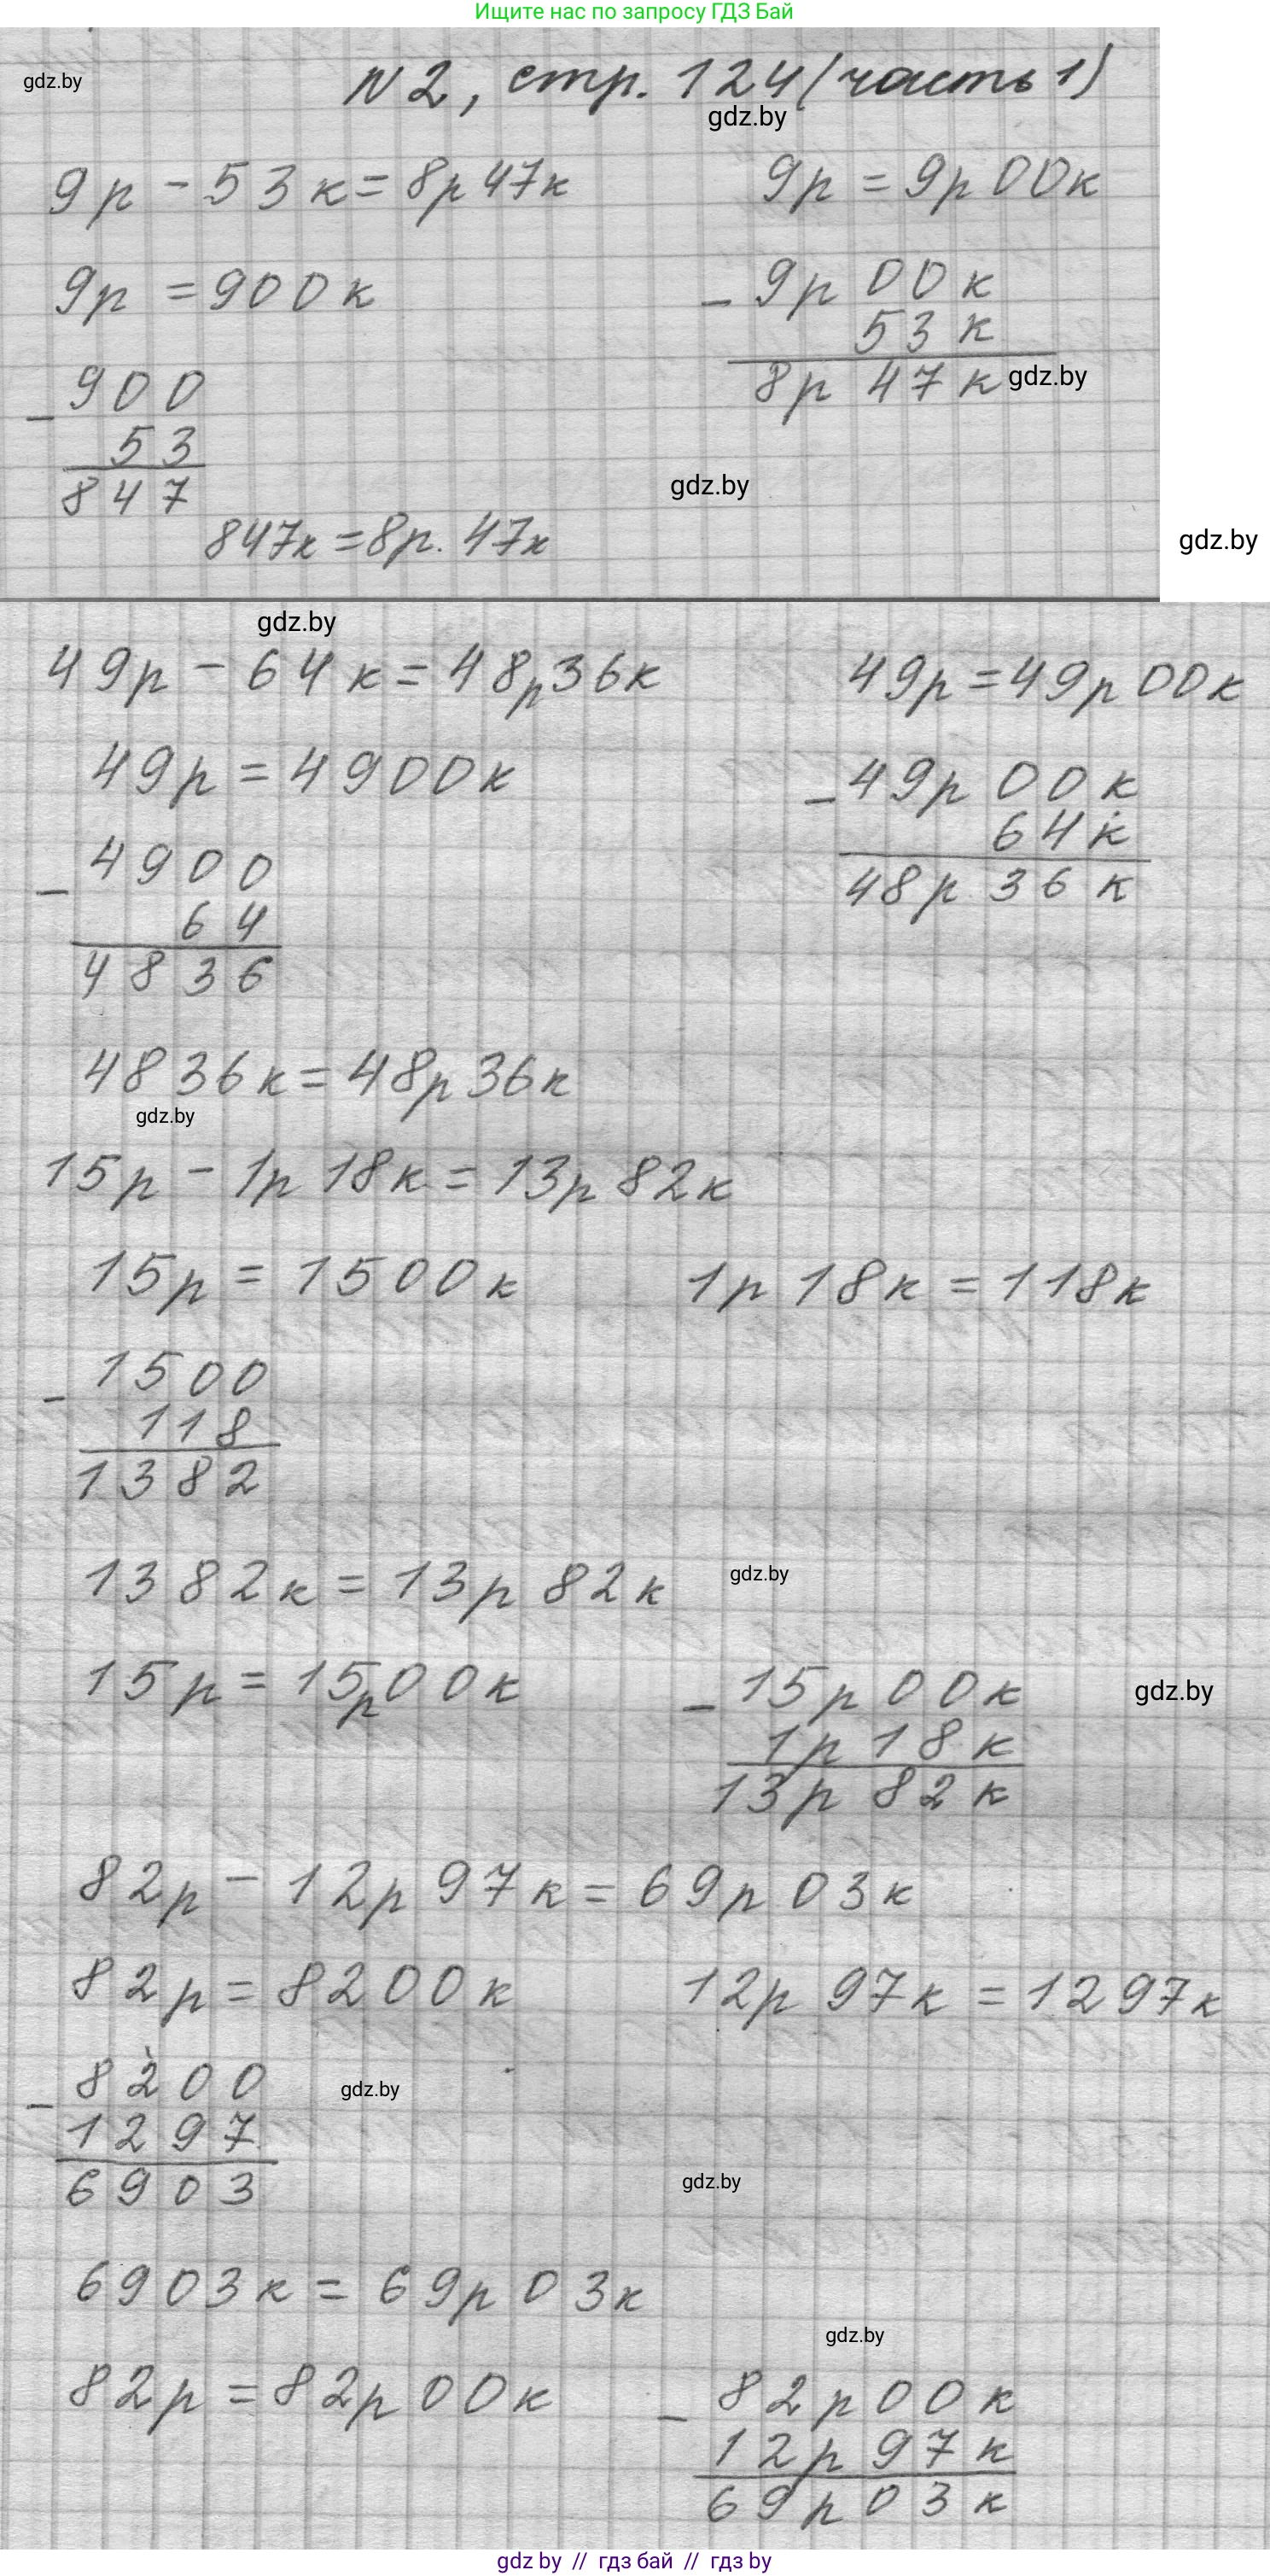 Ищите нас по запросу ГДЗ Бай
gdz.by
N2, стр. 124 (часть 1)
gdz.by
9р - 53к = 8р 47к
9р = 900к
- 900
53
847
847к = 8р. 47к
9р = 9р 00к
- 9р 00к
53к
8р 47к
gdz.by
gdz.by
gdz.by
gdz.by
49р - 64к = 48р36к
49р = 4900к
- 4900
64
4836
4836к = 48р36к
49р = 49р 00к
- 49р 00к
64к
48р 36к
gdz.by
15р - 1р 18к = 13р 82к
15р = 1500к
1р 18к = 118к
- 1500
118
1382
1382к = 13р 82к
gdz.by
15р = 15р00к
- 15р 00к
1р 18к
13р 82к
gdz.by
82р - 12р 97к = 69р 03к
82р = 8200к
12р 97к = 1297к
- 8200
1297
6903
gdz.by
gdz.by
6903к = 69р 03к
gdz.by
82р = 82р 00к
- 82р 00к
12р 97к
69р 03к
gdz by // гдз бай // гдз by